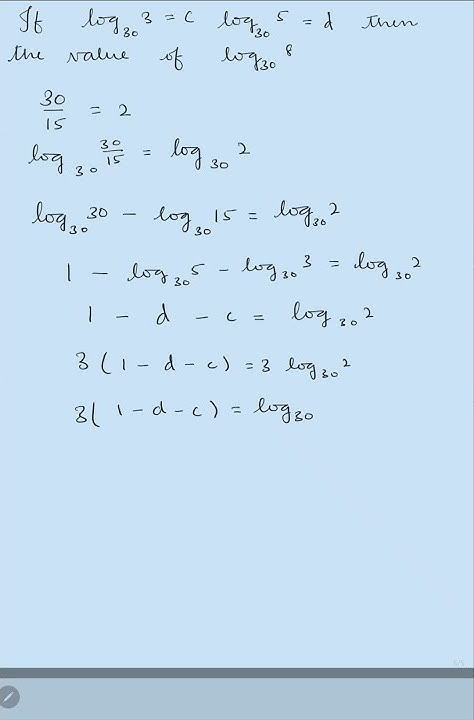 If log₃₀3 = c log₃₀5 = d then
the value of log₃₀8
30/15 = 2
log₃₀ 30/15 = log₃₀2
log₃₀30 - log₃₀15 = log₃₀2
1 - log₃₀5 - log₃₀3 = log₃₀2
1 - d - c = log₃₀2
3(1 - d - c) = 3 log₃₀2
3(1 - d - c) = log₃₀